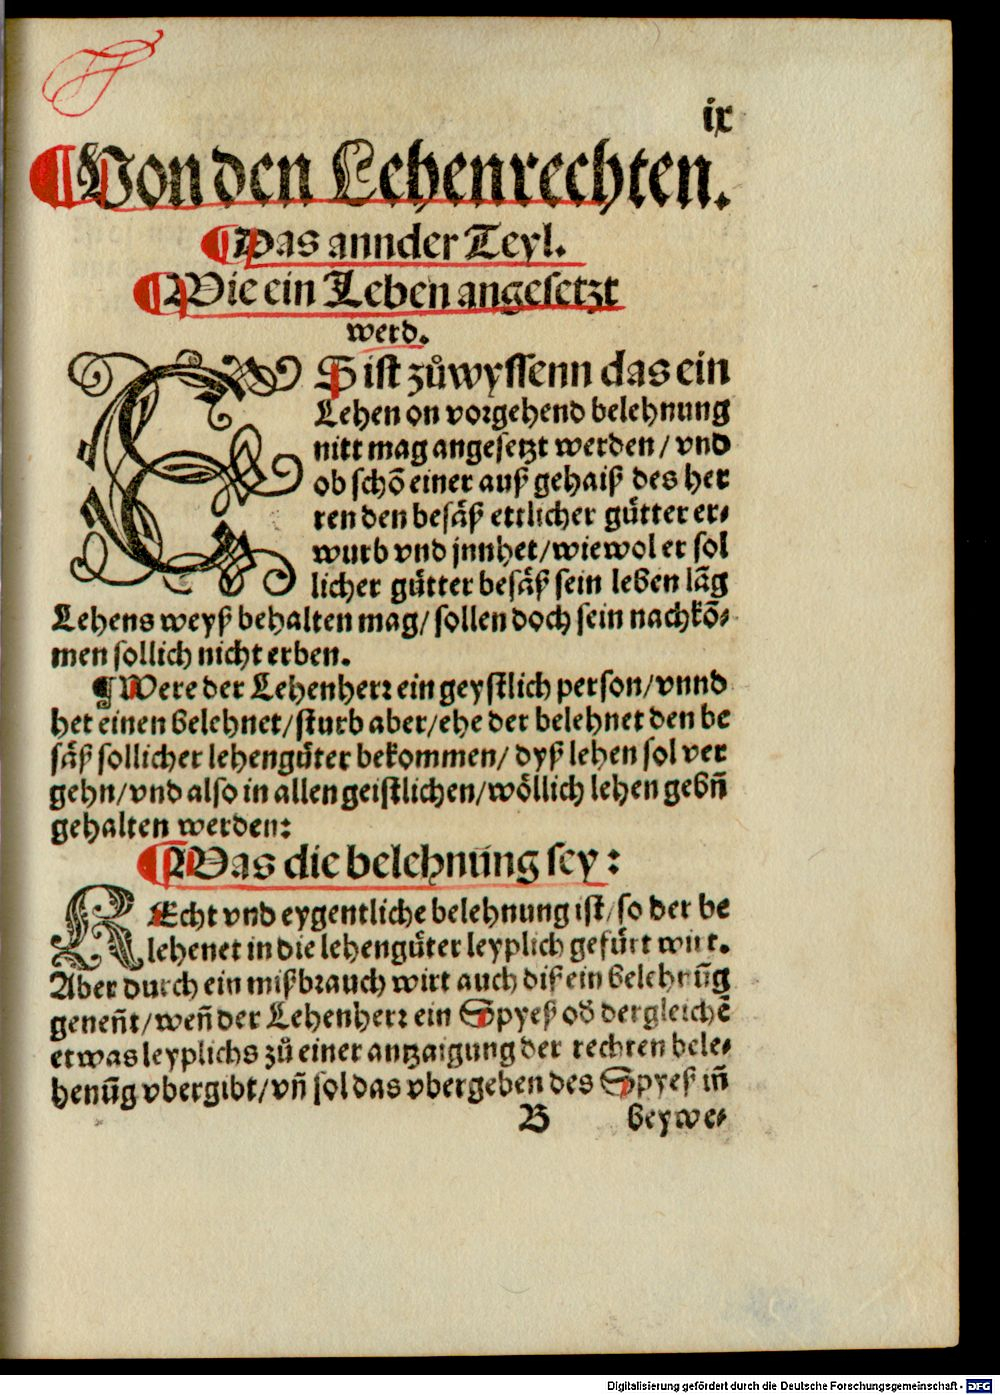 ix
¶Von den Lehenrechten.
¶Das annder Teyl.
¶Wie ein Lehen angesetzt
werd.
ES ist zůwyssenn das ein
Lehen on vorgehend belehnung
nitt mag angesetzt werden/ vnd
ob schõ einer auß gehaiß des her
ren den besäß ettlicher gütter er⸗
wurb vnd jnnhet/wiewol er sol
licher gütter besäß sein leben lãg
Lehens weyß behalten mag/ sollen doch sein nachkõ⸗
men sollich nicht erben.
¶Were der Lehenherr ein geystlich person/vnnd
het einen belehnet/sturb aber/ehe der belehnet den be
säß sollicher lehengüter bekommen/ dyß lehen sol ver
gehn/vnd also in allen geistlichen/wöllich lehen gebñ
gehalten werden:
¶Was die belehnung sey:
REcht vnd eygentliche belehnung ist/so der be
lehenet in die lehengüter leyplich gefürt wirt.
Aber durch ein mißbrauch wirt auch diß ein belehnũg
geneñt/weñ der Lehenherr ein Spyeß od̃ dergleichẽ
etwas leyplichs zů einer antzaigung der rechten bele⸗
henũg vbergibt/vñ sol das vbergeben des Spyeß iñ
B beywe⸗
Digitalisierung gefördert durch die Deutsche Forschungsgemeinschaft - DFG